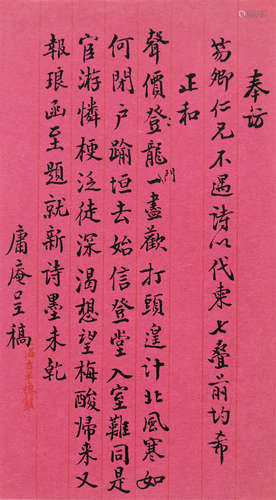 奉访
芴卿仁兄不遇诗以代柬七叠前均希
正和
聲價登龍一盡歡打頭遑计北風寒如
門
何閉户踰垣去始信登堂入室難同是
官游憐梗泛徒深渴想望梅酸歸来又
報琅函至題就新诗墨未乾
庸庵呈稿